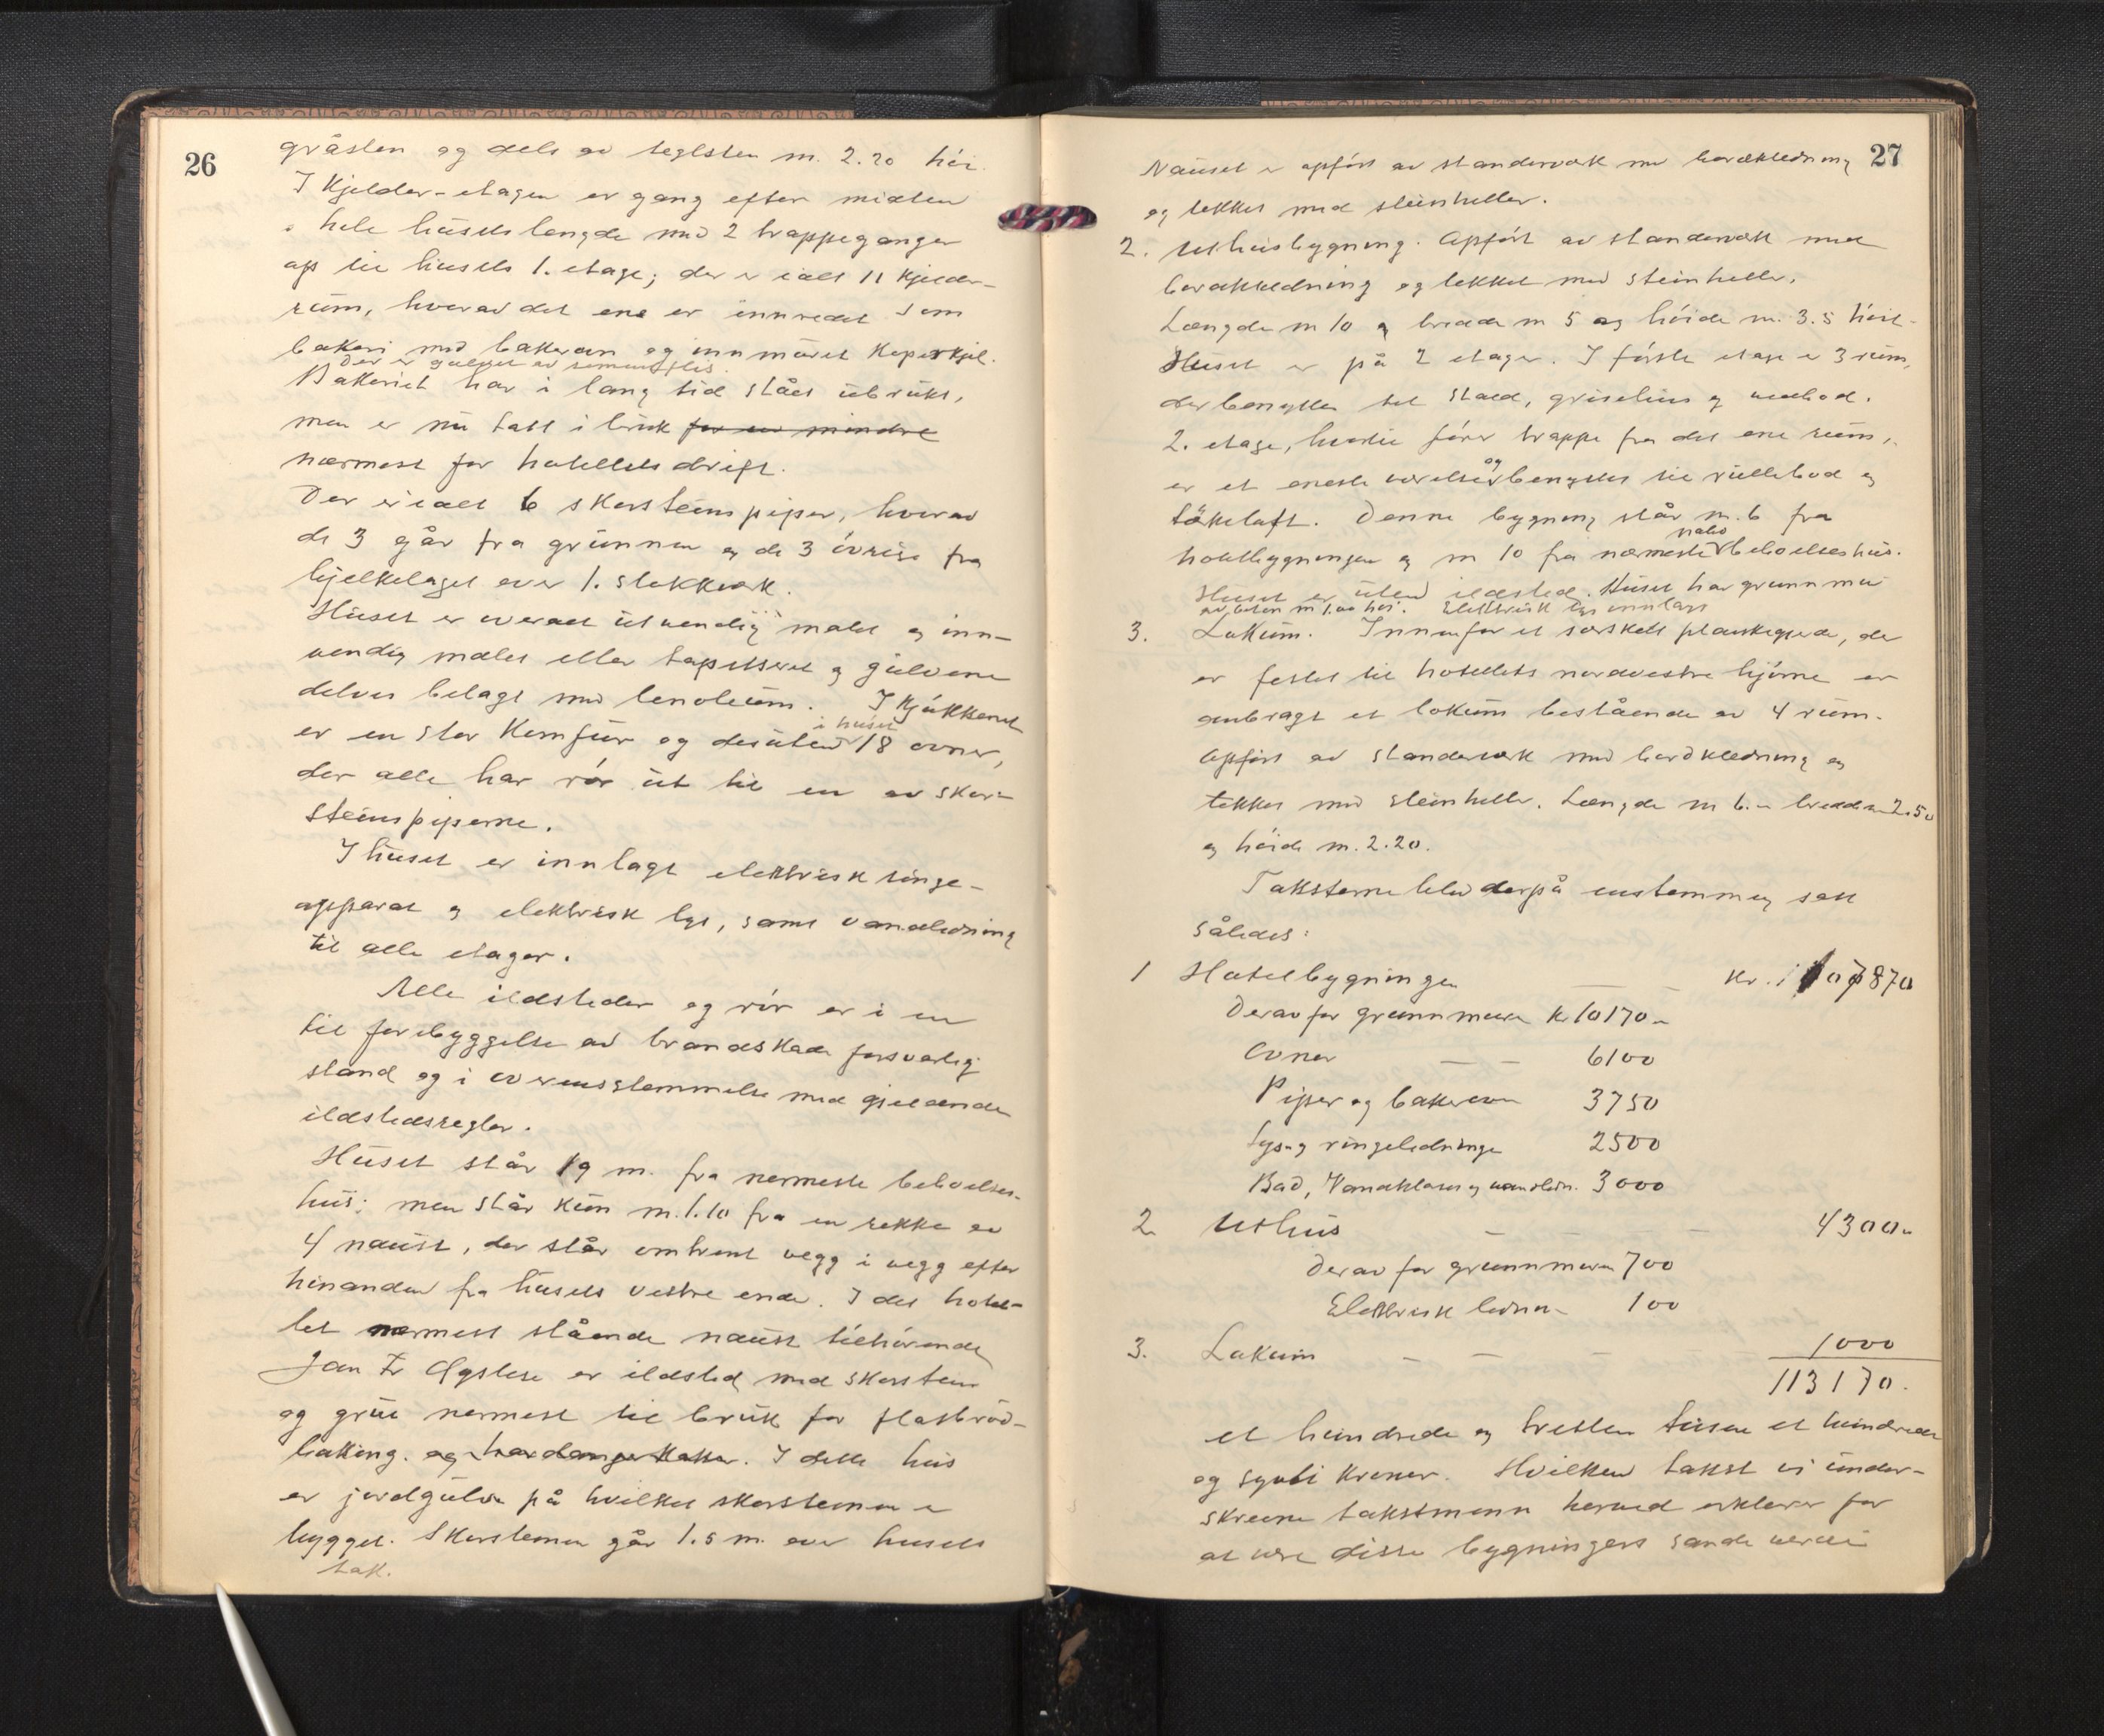 26
gråsten og dels av teglsten m. 2.20 høi.
I Kjelder-etagen er gang efter midten
i hele husets længde med 2 trappeganger
op til husets 1. etage; der er ialt 11 kjelder-
rum, hvorav det ene er innredet som
bakeri med bakerovn og innmuret Koperkjel.
Der er gulvet av sementflis.
Bakeriet har i lang tid stået ubrukt,
men er nu tatt i bruk for en mindre
nærmest for hotellets drift.
Der er ialt 6 skorsteinspiper, hvorav
de 3 går fra grunnen og de 3 øvrige fra
bjelkelaget over 1. stokkverk.
Huset er overalt utvendig malet og inn-
vendig malet eller tapetseret og gulvene
delvis belagt med lenoleum. I Kjøkkenet
er en stor Komfur og desuten i huset 18 ovner,
der alle har rør ut til en av skor-
steinspiperne.
I huset er innlagt elektrisk ringe-
apparat og elektrisk lys, samt vandledning
til alle etager.
Alle ildsteder og rør er i en
til forebyggelse av brandskade forsvarlig
stand og i overensstemmelse med gjeldende
ildstedsregler.
Huset står 19 m. fra nermeste beboelses-
hus; men står kun m. 1.10 fra en rekke av
4 naust, der står omtrent vegg i vegg efter
hinanden fra husets vestre ende. I det hotel-
let nærmest stående naust tilhørende
Jon Fr Øgstese er ildsted med skorsten
og grue nermest til bruk for flatbrød-
baking. og hardangerkaker. I dette hus
er jordgulv på hvilket skorstenen er
bygget. Skorstenen går 1.5 m. over husets
tak.
27
Nauset er opført av standerverk med bordkledning
og tekket med steinheller.
2. Uthusbygning. Opført av standerverk med
bordkledning og tekket med steinheller.
Længde m 10 og bredde m 5 og høide m. 3.5 høit.
Huset er på 2 etager. I første etage er 3 rum,
der benyttes til stald, grisehus og vedbod.
2. etage, hvortil fører trappe fra det ene rum,
er et eneste værelse og benyttes til rullebod og
tørkeloft. Denne bygning står m. 6 fra
hotelbygningen og m 10 fra nærmeste nabo beboelseshus.
Huset er uten ildsted. Huset har grunnmur
av beton m 1.00 høi. Elektrisk lys innlagt
3. Lokum. Innenfor et særskilt plankegjerde, der
er festet til hotellets nordvestre hjørne er
anbragt et lokum bestående av 4 rum.
Opført av standerverk med bordkledning og
tekket med steinheller. Længde m 6.- bredde m 2.50
og høide m. 2.20.
Taksterne blev derpå enstemmig satt
således:
1 Hotelbygningen — — Kr. 107870
Derav for grunnmuren Kr 10170.-
Ovner — — 6100
Piper og bakerovn 3750
Lys og ringeledninger 2500
Bad, Vandklosett og vandledn. 3000
2 Uthus — — — 4300.-
Derav for grunnmuren 700
Elektrisk ledning 100
3. Lokum — — — 1000
113170.
et hundrede og tretten tusen et hundrede
og sytti kroner. Hvilken takst vi under-
skrevne takstmenn herved erklærer for
at være disse bygningers sande verdi